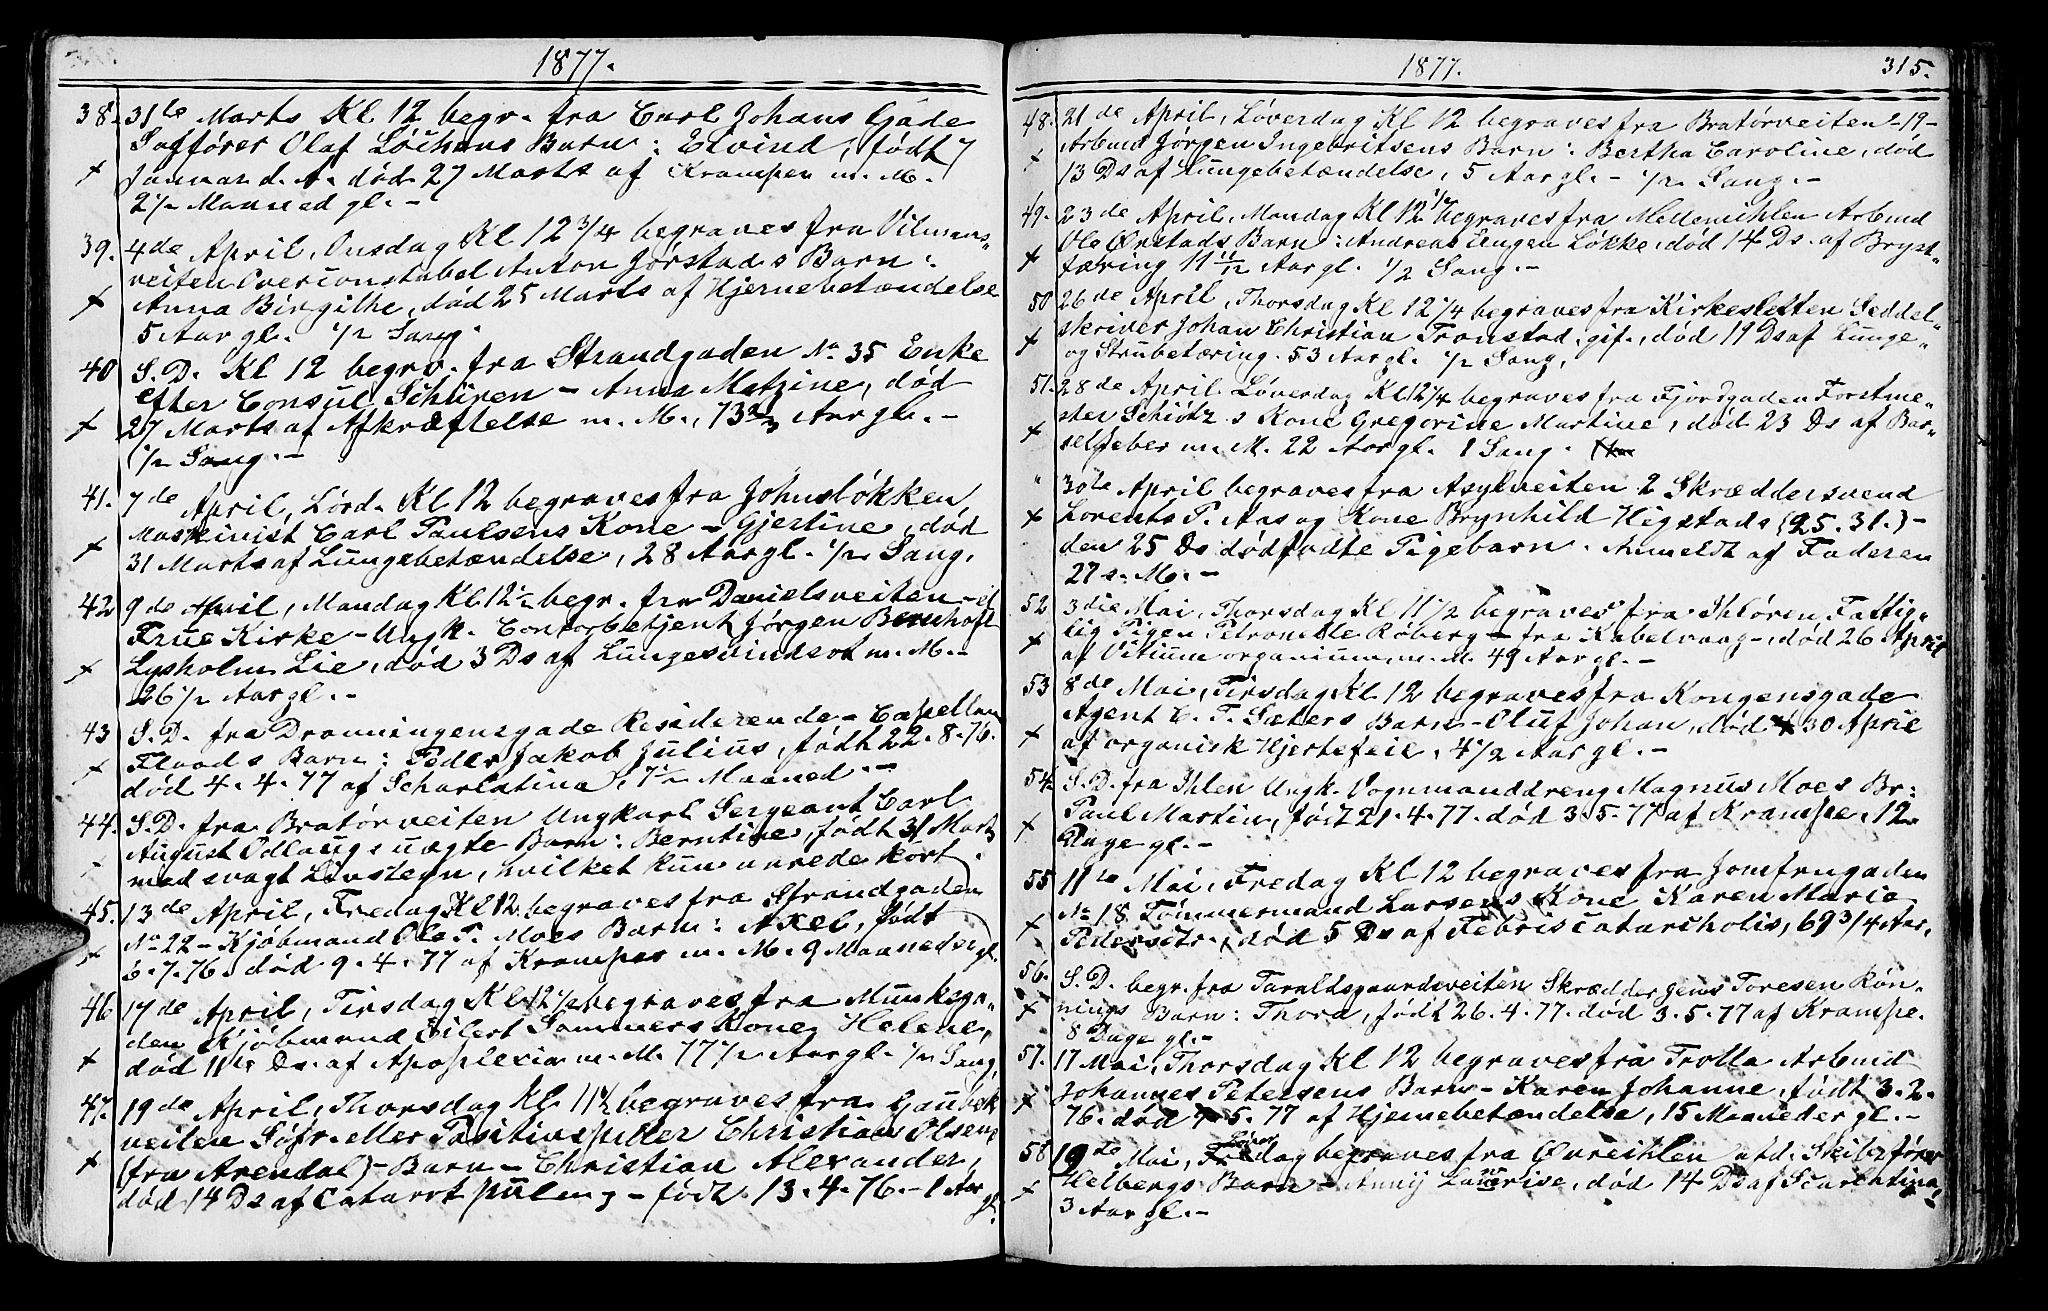 1877.
38. 31te Marts Kl 12 begr. fra Carl Johans Gade
Sagfører Olaf Løchens Barn: Eivind, født 7
Januar d. A. død 27 Marts af Kramper m. M.
2 1/2 Maaned gl. -
39. 4de April, Onsdag Kl 12 3/4 begraves fra Vilmans-
veiten Overconstabel Anton Jørstads Barn:
Anna Birgithe, død 25 Marts af Hjernebetændelse
5 Aar gl. 1/2 Sang.
40 S. D. Kl 12 begrv. fra Strandgaden No 35 Enke
efter Consul Schüren - Anna Matzine, død
27 Marts af Afkræftelse m. M., 73 2/3 Aar gl. -
1/2 Sang. -
41. 7de April, Lørd. Kl 12 begraves fra Johnsløkken
Maskinist Carl Paulsens Kone - Gjertine, død
31 Marts af Lungebetændelse, 28 Aar gl. 1/2 Sang.
42 9de April, Mandag Kl 12 1/2 begr. fra Danielsveiten - af
Frue Kirke - Ungk. Contorbetjent Jørgen Bernhoft
Lysholm Lie, død 3 Ds af Lungesvindsot m. M. -
26 1/2 Aar gl. -
43 S. D. fra Dronningensgade Residerende - Capellan
Floods Barn: Peder Jakob Julius, født 22. 8. 76.
død 4. 4. 77 af Scharlatina, 7 1/2 Maaned. -
44. S. D. fra Bratørveiten Ungkarl Sergeant Carl
August Odlaugs uægte Barn: Berntine, født 31 Marts
med svagt Livstegn, hvilket kun varede kort.
45. 13de April, Fredag Kl 12 begraves fra Strandgaden
No 22 - Kjøbmand Ole P. Moes Barn: Axel, født
6. 7. 76. død 9. 4. 77 af Kramper m. M. 9 Maaneder gl.
46 17de April, Tirsdag Kl 12 1/2 begraves fra Munkega-
den Kjøbmand Eilert Sommers Kone Helene,
død 11te Ds. af Apoplexia m. M. 77 1/2 Aar gl. 1/2 Sang.
47. 19de April, Thorsdag Kl 11 1/2 begraves fra Gaubæk
veiten Søfr. eller Positivspiller Christian Olsens
(fra Arendal) - Barn - Christian Alexander,
død 14 Ds af Catarrt - født 13. 4. 76. - 1 Aar gl.
1877. 315.
48. 21de April, Løverdag Kl 12 begraves fra Bratørveiten - 19 -
Arbmd Jørgen Ingebritsens Barn: Bertha Caroline, død
13 Ds af Lungebetændelse, 5 Aar gl. - 1/2 Sang. -
49. 23de April, Mandag Kl 12 1/4 begraves fra Mellemihlen Arbmd
Ole Ørstads Barn: Andreas Eugen Løkke, død 14 Ds. af Bryst-
tæring 11 11/12 Aar gl. 1/2 Sang. -
50 26de April, Thorsdag Kl 12 1/4 begraves fra Kirkesletten Seddel-
skriver Johan Christian Tronstad, gift., død 19 Ds af Lunge-
og Strubetæring. 53 Aar gl. 1/2 Sang.
51. 28de April Løverdag Kl 12 1/4 begraves fra Fjordgaden Forstme-
ster Schiøtz's Kone Gregorine Martine, død 23 Ds af Bar-
selfeber m. M. 22 Aar gl. 1 Sang.
" 30te April begraves fra Asylveiten 2 Skræddersvend
Lorents P. Aas og Kone Brynhild Higstads (25. 31.) -
den 25 Ds dødfødte Pigebarn. Anmeldt af Faderen
27 s. M. -
52 3die Mai, Thorsdag Kl 11 1/2 begraves fra Ihløren, Fattig-
lig Pigen Petronelle Røberg - fra Kabelvaag -, død 26 April
af Vitium organicum m. M. 49 Aar gl. -
53 8de Mai, Tirsdag Kl 12 begraves fra Kongensgade
Agent C. T. Sæters Barn - Oluf Johan, død 30 April
af organisk Hjertefeil, 4 1/2 Aar gl. -
54. S. D. fra Ihlen Ungk. Vognmanddreng Magnus Moes Br:
Paul Martin, født 21. 4. 77. død 3. 5. 77 af Krampe. 12
Dage gl. -
55 11te Mai, Fredag Kl 12 begraves fra Jomfrugaden
No 18. Tømmermand Larsens Kone Karen Marie
Pedersdtr., død 5 Ds af Febris catarrholis, 69 3/4 Aar.
56. S. D. begr. fra Taraldsgaardsveiten Skrædder Jens Toresen Røn-
nings Barn: Thora, født 26. 4. 77. død 3. 5. 77 af Krampe.
8 Dage gl. -
57. 17 Mai, Thorsdag Kl 12 begraves fra Trolla Arbmd
Johannes Petersens Barn - Karen Johanne, født 3. 2.
76. død 4. 5. 77 af Hjernebetændelse, 15 Maaneder gl. -
58. 19de Mai, Løverdag begraves fra Øvreihlen Skibsfører
Helbergs Barn - Anny, død 14 Ds af Scarlatina,
3 Aar gl. -